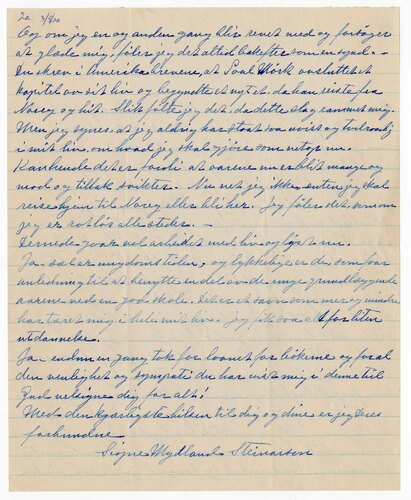 2a 3/8 20
Og om jeg en og anden gang blir revet med og forsöger
at glæde mig, föler jeg det altid bakefter som en synd. -
Du skrev i Amerika brevene, at Paal Mörk avsluttet et
kapitel av sit liv og begyndte et nyt et, da han reiste fra
Noreg og hit. Slik følte jeg det, da dette slag rammet mig.
Men jeg synes, at jeg aldrig har staat saa uviss og tvilraadig
i mit liv, om hvad jeg skal gjöre som netop nu.
Kanhende det er, fordi at aarene mer blit mange og
mod og tiltak svikter. Nu vet jeg ikke, enten jeg skal
reise hjem til Noreg eller bli her. Jeg föler det, som om
jeg er rotlös alle steder. -
Dermede gaar vel arbeidet med liv og lyst nu.
Ja sæl er ungdomstiden, og lykkelige er de, som faar
anledning til at benytte en del av de unge grundlæggende
aarene ved en god skole. Det er et savn som mer og mindre
har tæret mig i hele mit liv. Jeg fik saa alt for liten
utdannelse.
Ja - endnu en gang tak for laanet for bökerne og for al
den venlighet og sympati du har vist mig i denne tid
Gud velsigne dig for alt!
Med den kjærligste hilsen til dig og dine er jeg Deres
forbundne
Signe Mydland Steinarson